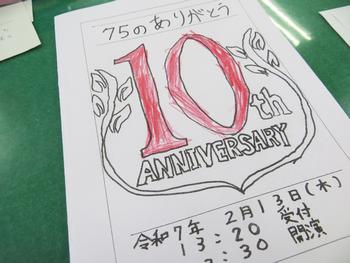 75のありがとう
10th
ANNIVERSARY
令和7年 2月13日(木)
13:20 受付
:30 開演